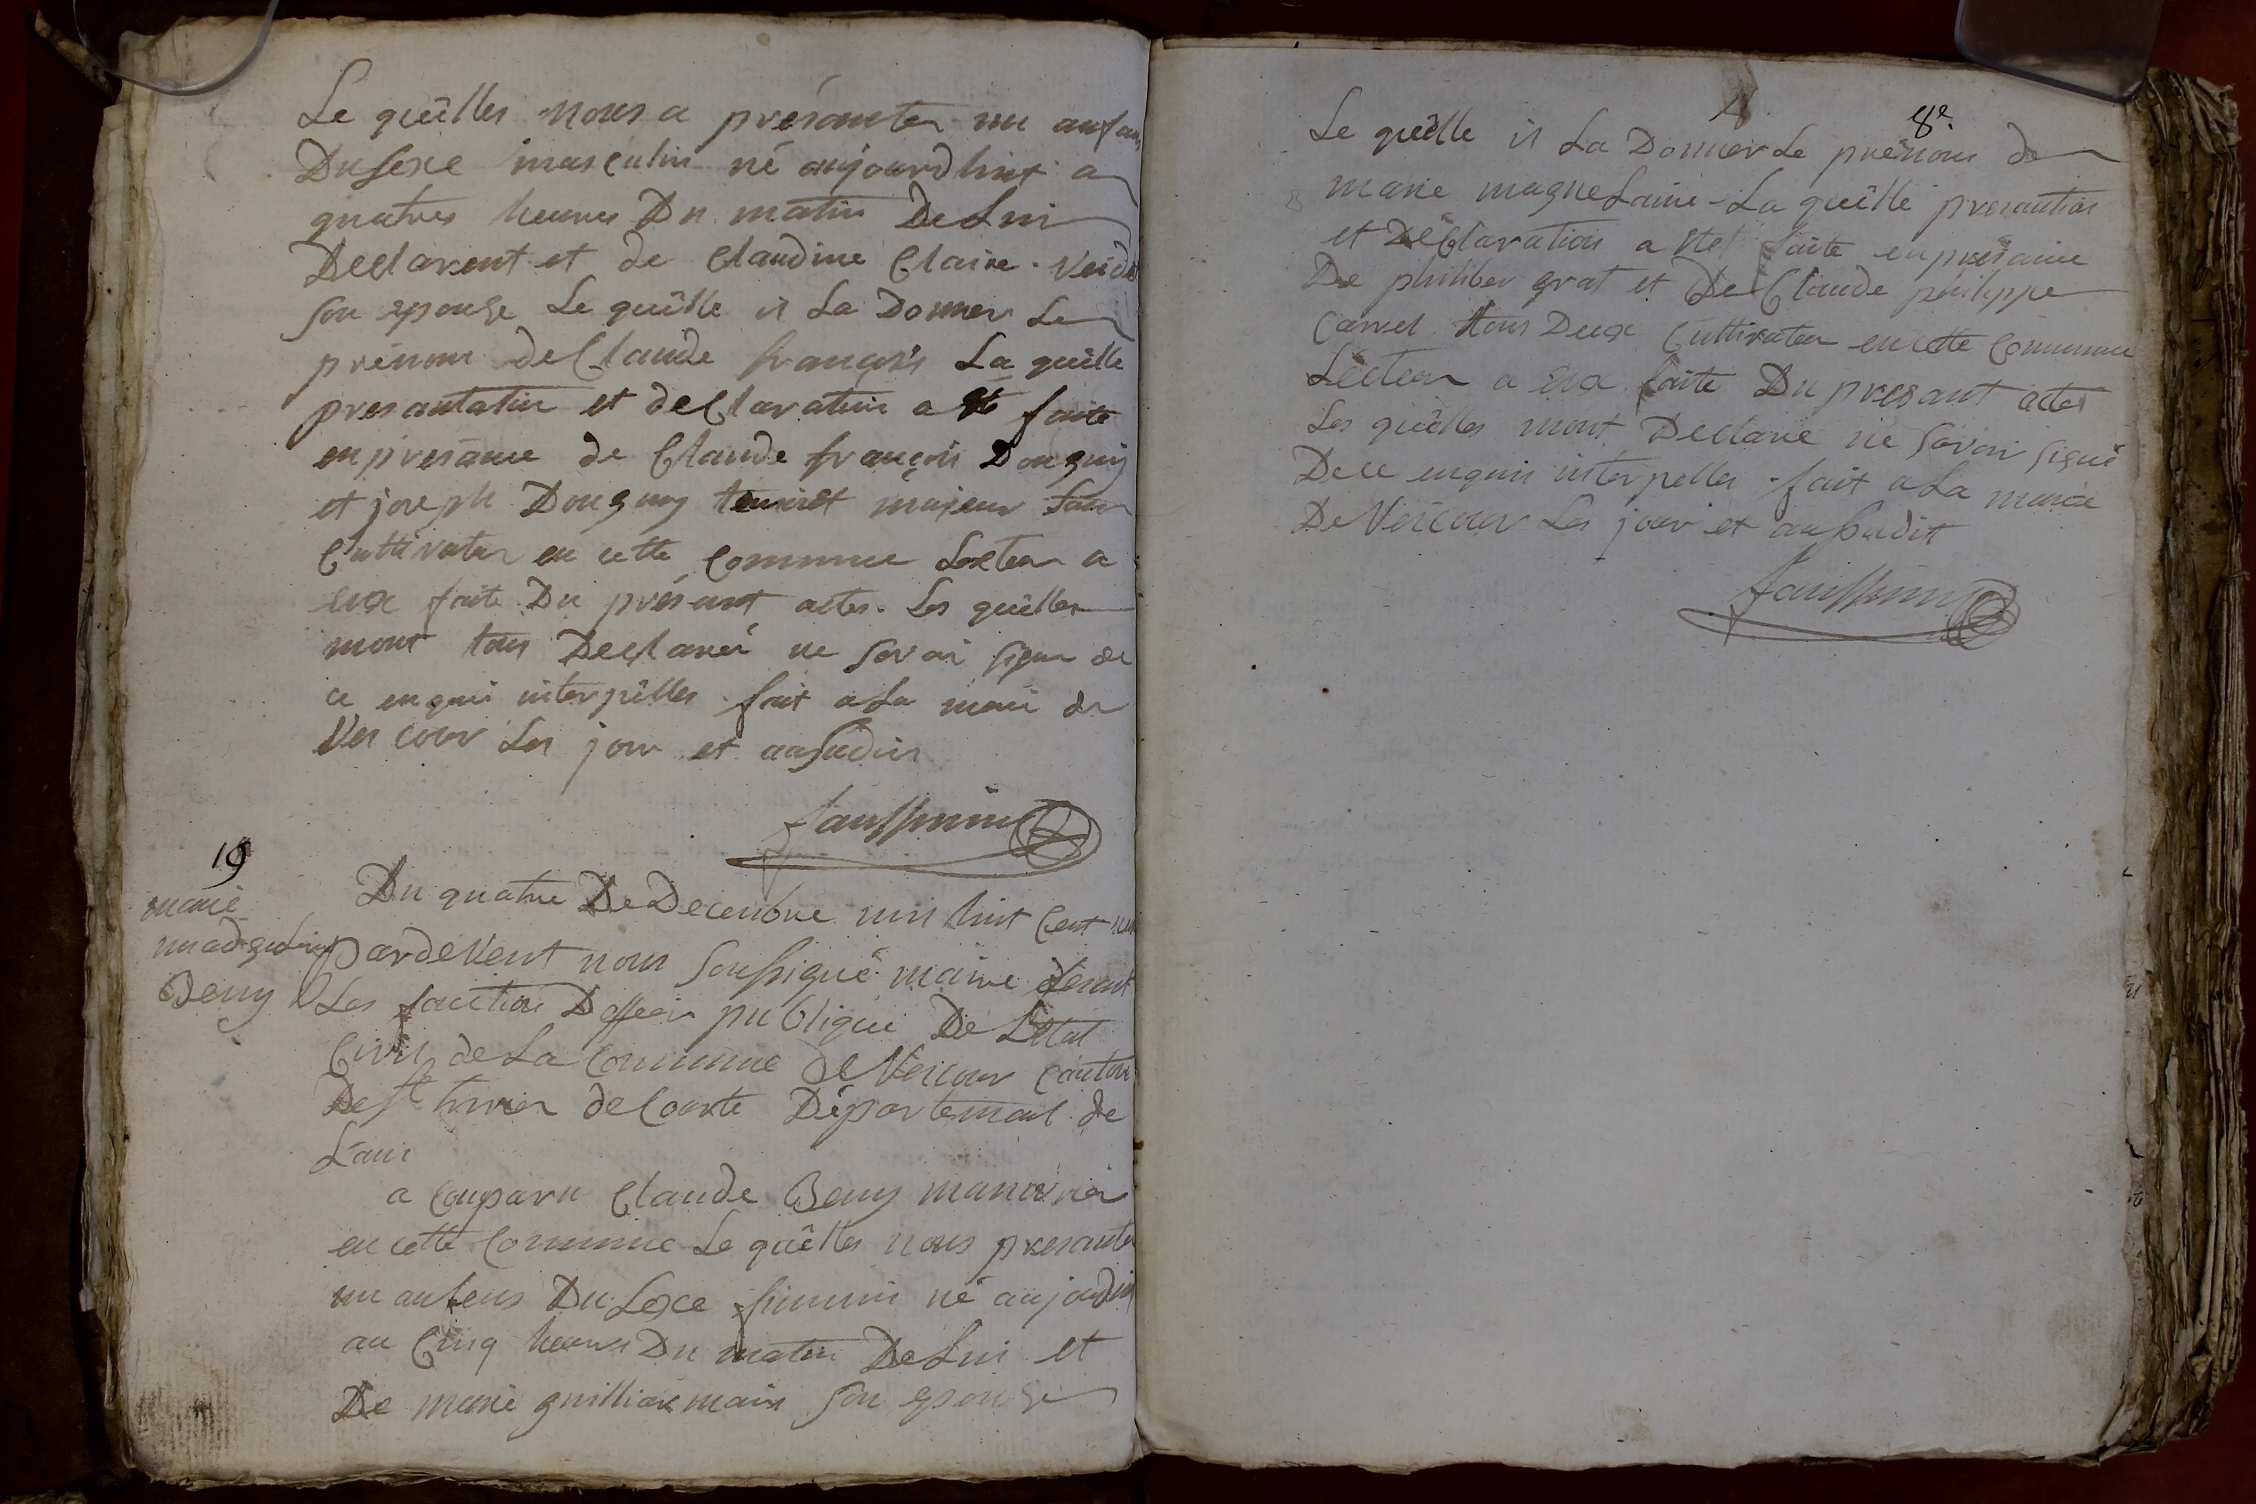 Le queîlles nous a présanter un anfan
Du sexe masculin né aujourdhuit a
quatres heures Du matin De Lui
Declarent et de Claudine Claire
son epouse Le queîlle il La Donner Le
prénom de Claude françois La queîlle
presantation et declaration a ete faite
en presance de Claude françois Donguy
et joseph Donguy majeur
Cultivater en cette Commune Lecteur a
eux faite Du présant actes. Les queîlles
mont tous Declaré ne savoi signe de
ce enquis interpelles fait a La mairi de
Vescour Les jour et an sudis
Jaussmin
19
marie
madgelaine
Beny
Du quatre De Decenbre mil huit Cent
pardevent nous soussigné maire fesant
Les fonction Doffcier publique De Létat
Civil de La Commune De Vescour Canton
De St trivier de Courte Département de
Lain
a Conparu Claude Beny manovrier
en cette Commune Le queîlles nous presante
un anfens Du Sexe feminin né aujourdhui
au Cinq heures Du matin De Lui et
De marie guilliarmain son epouse
8e.
Le queîlle il La Donner Le prénom de
marie magneLaine La queîlle presantion
et Déclaration a ete faite en presance
De philiber grat et De Claude philippe
Carrel tous Deux Cultivateur en cette Commune
Lecteur a eux faite Du presant actes
Les queîlles mont Declaré ne savoir signé
De ce enquis interpelles fait a La mairie
De Vescour Les jour et an sudit
Jaussmin